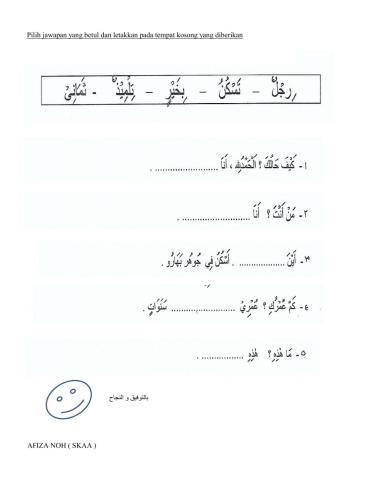 Pilih jawapan yang betul dan letakkan pada tempat kosong yang diberikan
رِجْلٌ – تَسْكُنُ – بِخَيْرٍ – تِلْمِيْذٌ - ثَمَانِيْ
١- كَيْفَ حَالُكَ ؟ اَلْحَمْدُلِلهِ ، أَنَا ........................ .
٢- مَنْ أَنْتَ ؟ أَنَا .......................... .
٣- أَيْنَ .................. . أَسْكُنُ فِي جُوهُر بَهَارُو .
٤- كَمْ عُمْرُكِ ؟ عُمْرِيْ ......................... سَنَوَاتٍ .
٥- مَا هٰذِهِ ؟ هٰذِهِ ................ .
بالتوفيق و النجاح
AFIZA NOH ( SKAA )